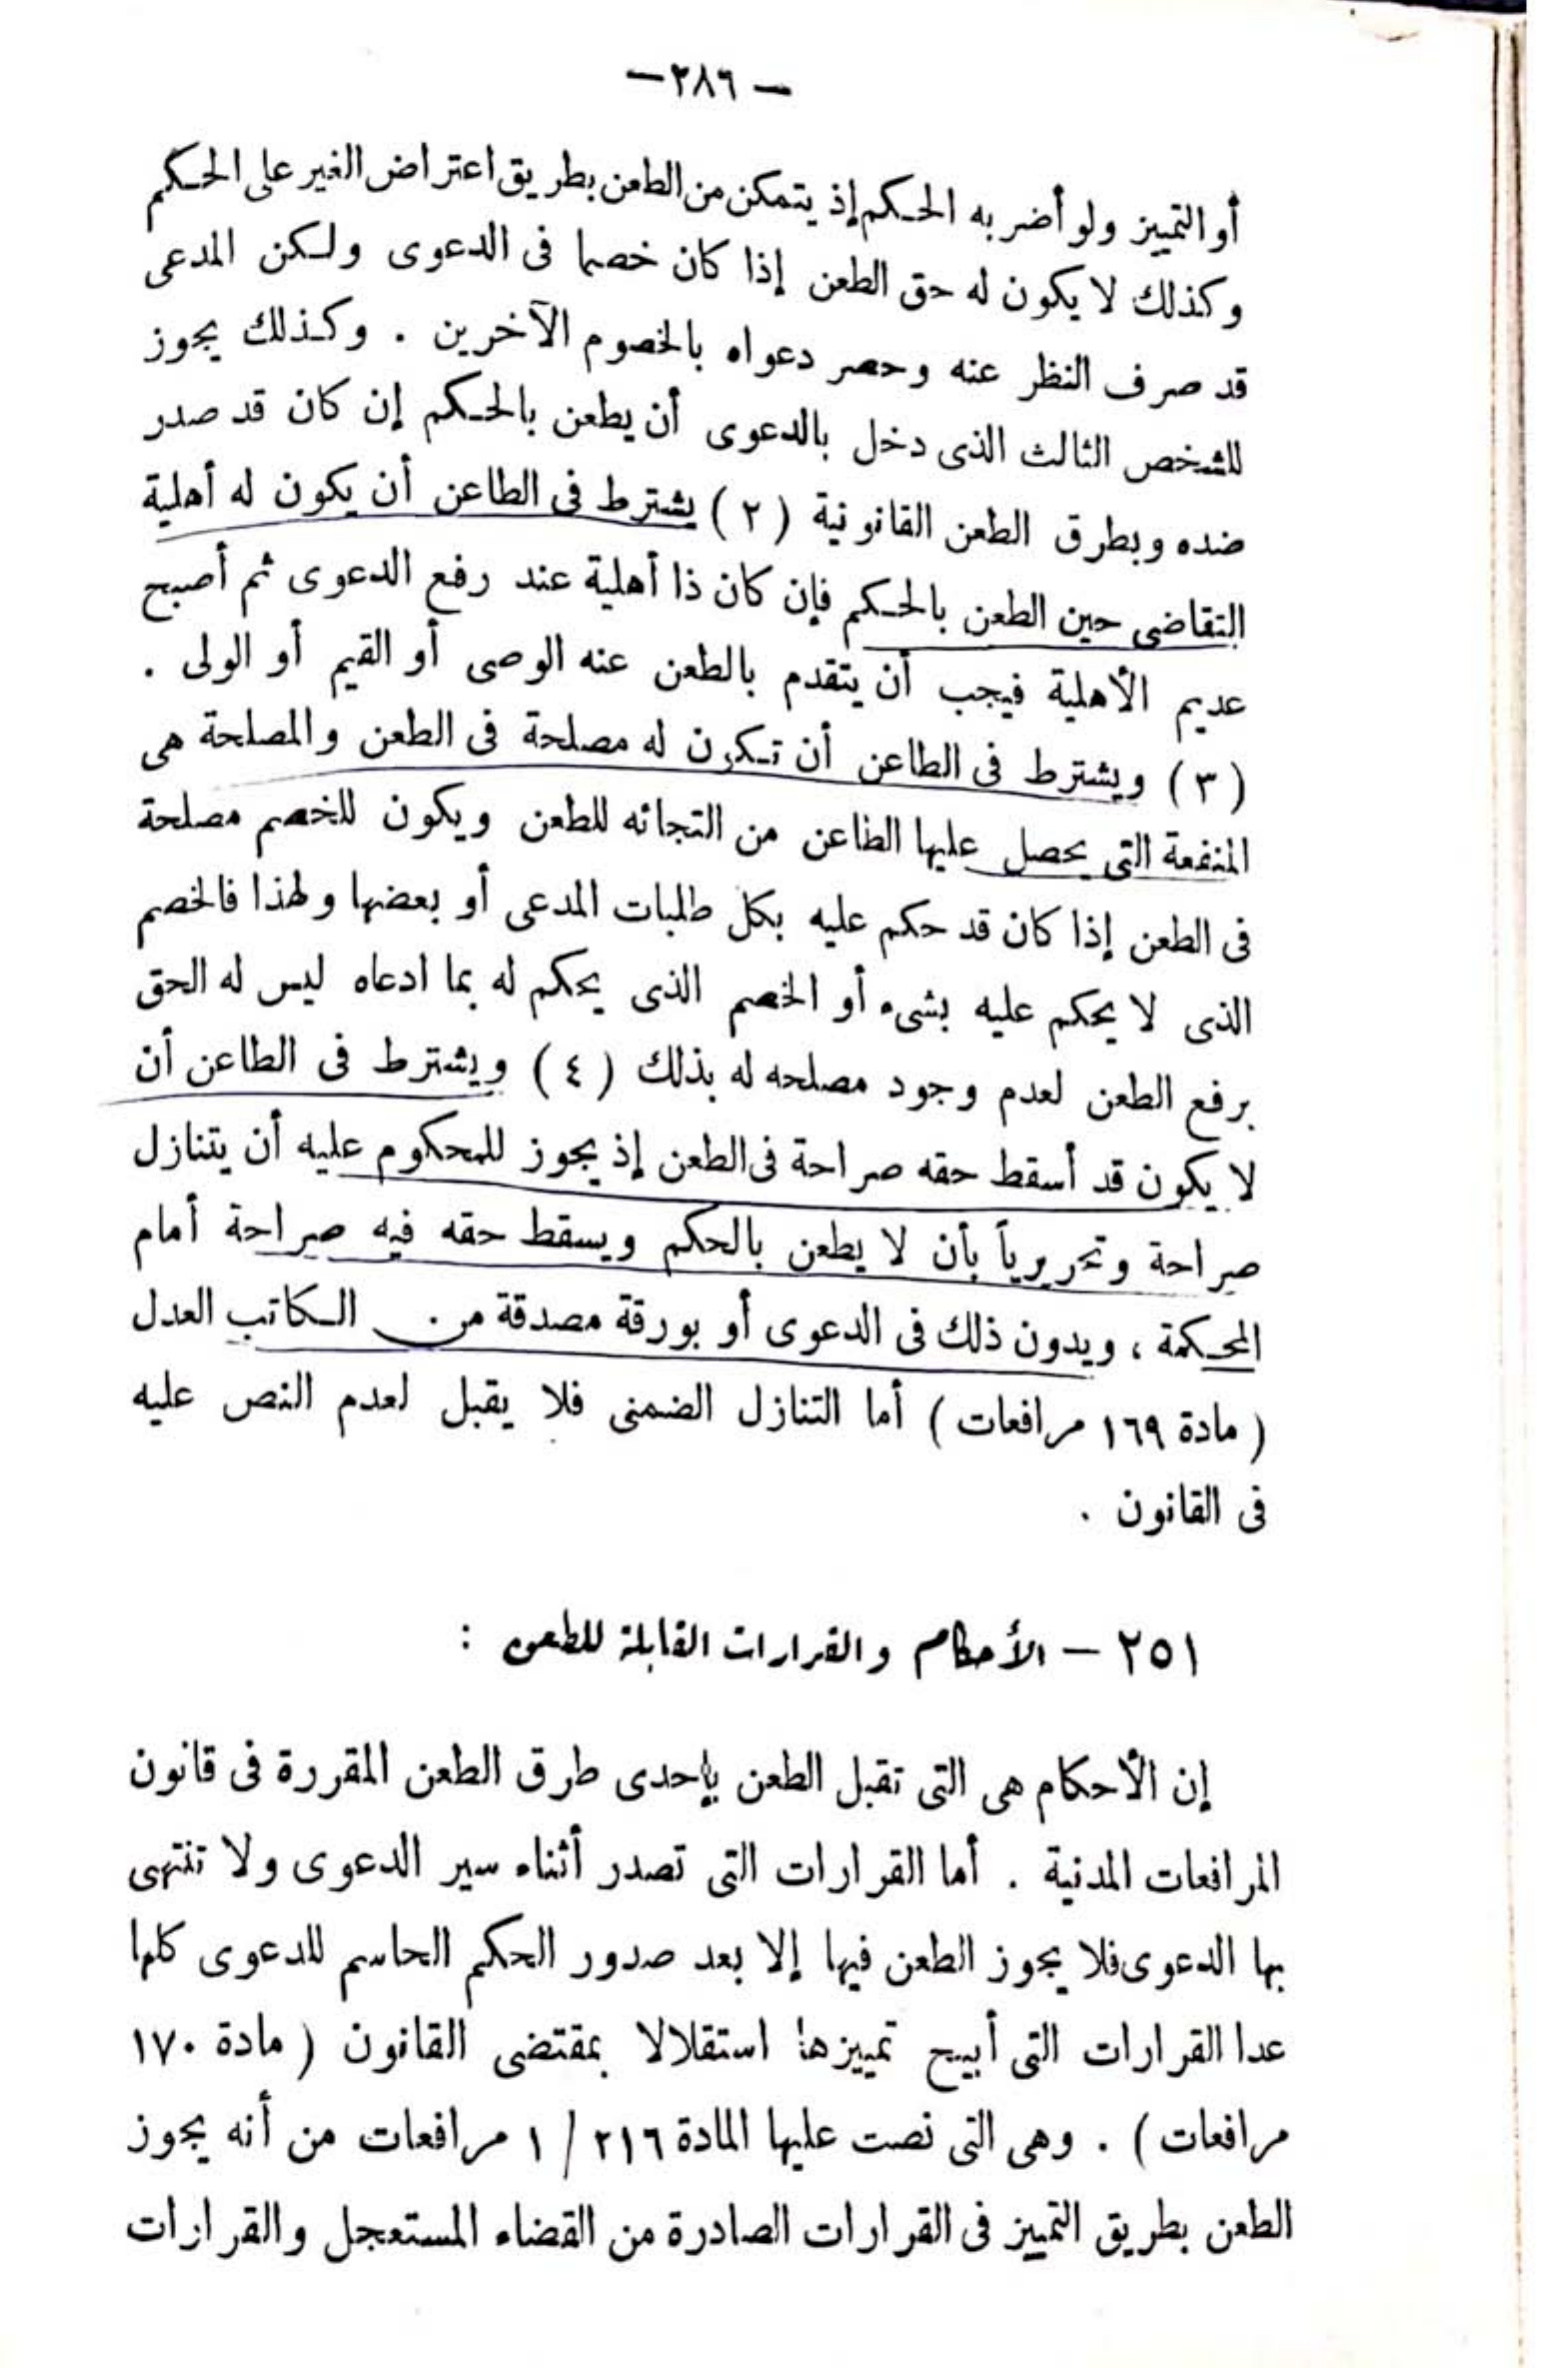 — ٢٨٦ —
أو التمييز ولو أضر به الحكم إذ يتمكن من الطعن بطريق اعتراض الغير على الحكم
وكذلك لا يكون له حق الطعن إذا كان خصما فى الدعوى ولكن المدعى
قد صرف النظر عنه وحصر دعواه بالخصوم الآخرين . وكذلك يجوز
للشخص الثالث الذى دخل بالدعوى أن يطعن بالحكم إن كان قد صدر
ضده وبطرق الطعن القانونية (٢) يشترط فى الطاعن أن يكون له أهلية
التقاضى حين الطعن بالحكم فإن كان ذا أهلية عند رفع الدعوى ثم أصبح
عديم الأهلية فيجب أن يتقدم بالطعن عنه الوصى أو القيم أو الولى .
(٣) ويشترط فى الطاعن أن تكون له مصلحة فى الطعن والمصلحة هى
المنفعة التى يحصل عليها الطاعن من التجائه للطعن ويكون للخصم مصلحة
فى الطعن إذا كان قد حكم عليه بكل طلبات المدعى أو بعضها ولهذا فالخصم
الذى لا يحكم عليه بشىء أو الخصم الذى يحكم له بما ادعاه ليس له الحق
برفع الطعن لعدم وجود مصلحه له بذلك (٤) ويشترط فى الطاعن أن
لا يكون قد أسقط حقه صراحة فى الطعن إذ يجوز للمحكوم عليه أن يتنازل
صراحة وتحريرياً بأن لا يطعن بالحكم ويسقط حقه فيه صراحة أمام
المحكمة ، ويدون ذلك فى الدعوى أو بورقة مصدقة من الكاتب العدل
( مادة ١٦٩ مرافعات ) أما التنازل الضمنى فلا يقبل لعدم النص عليه
فى القانون .
٢٥١ — الأحكام والقرارات القابلة للطعن :
إن الأحكام هى التى تقبل الطعن بإحدى طرق الطعن المقررة فى قانون
المرافعات المدنية . أما القرارات التى تصدر أثناء سير الدعوى ولا تنتهى
بها الدعوى فلا يجوز الطعن فيها إلا بعد صدور الحكم الحاسم للدعوى كلها
عدا القرارات التى أبيح تمييزها استقلالا بمقتضى القانون ( مادة ١٧٠
مرافعات ) . وهى التى نصت عليها المادة ٢١٦ / ١ مرافعات من أنه يجوز
الطعن بطريق التمييز فى القرارات الصادرة من القضاء المستعجل والقرارات